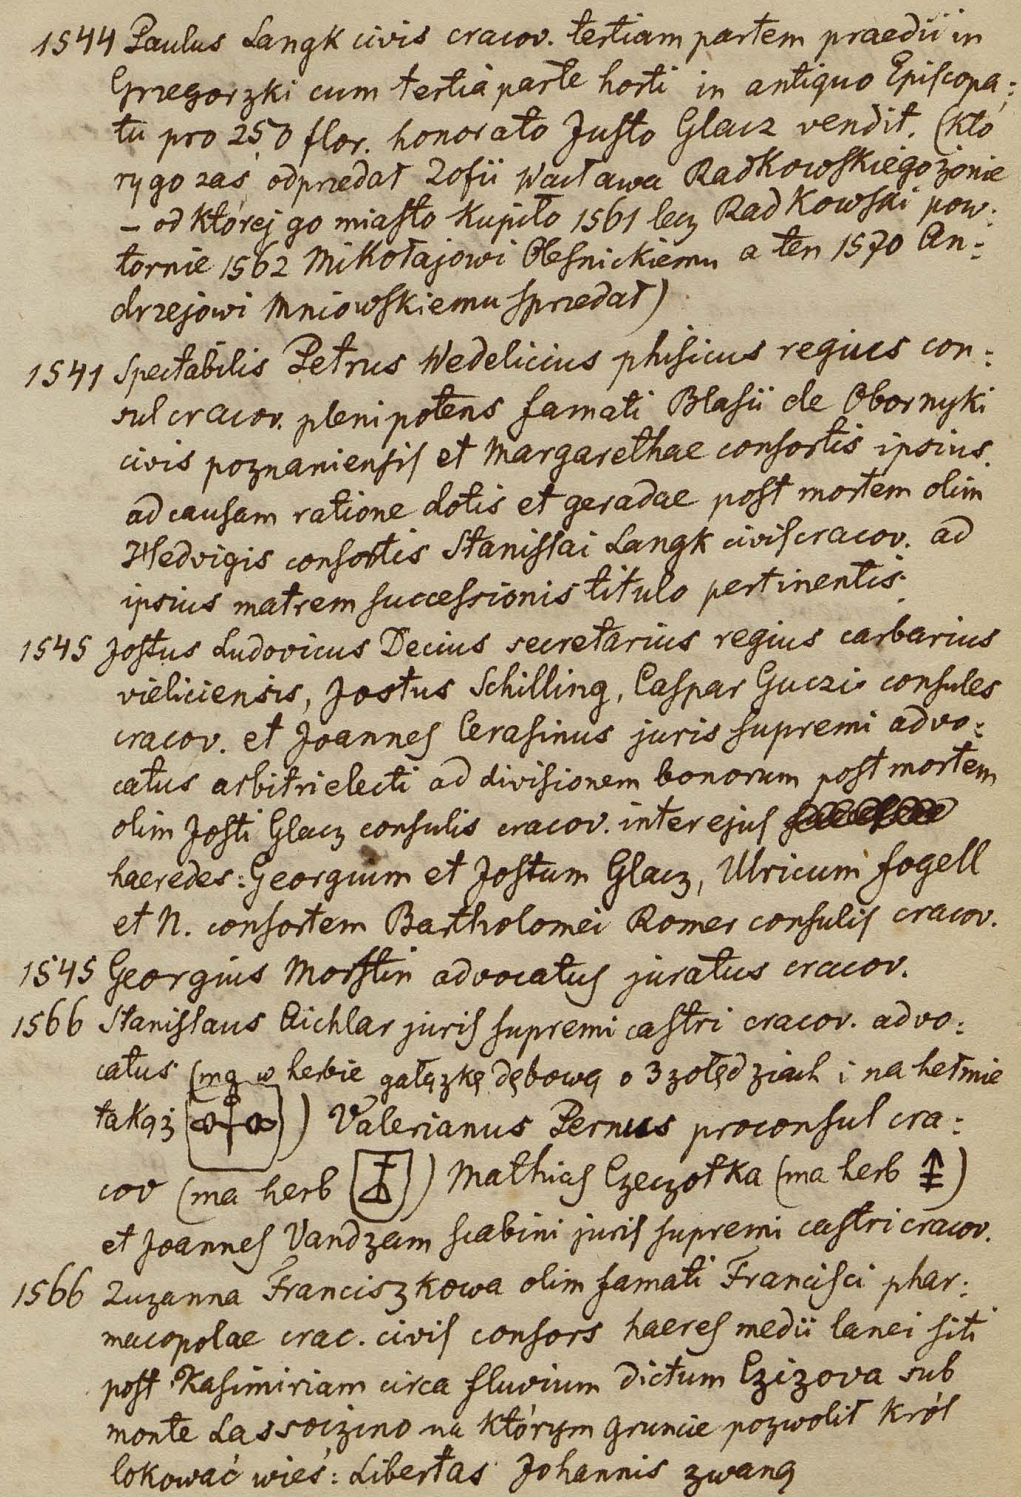 1544 Paulus Langk civis cracov. tertiam partem praedii in
Grzegorzki cum tertia parte horti in antiquo Episcopa:
tu pro 250 flor. honorato Justo Glacz vendit. (któ
rygo zaś odprzedał Zofii Wacława Radkowskiego żonie
– od której go miasto kupiło 1561 lecz Radkowski pow:
tornie 1562 Mikołajowi Olesnickiemu a ten 1570 An:
drzejowi Mniowskiemu sprzedał)
1541 Spectabilis Petrus Wedelicius phisicus regius con:
sul cracov. plenipotens famati Blasii de Obornyki
civis poznaniensis et Margarethae consortis ipsius
ad causam ratione dotis et geradae post mortem olim
Hedvigis consortis Stanislai Langk civis cracov. ad
ipsius matrem successionis titulo pertinentis.
1545 Jostus Ludovicus Decius secretarius regius carbarius
vieliciensis, Jostus Schilling, Caspar Guczi consules
cracov. et Joannes Cerasinus juris supremi advo:
catus arbitri electi ad divisionem bonorum post mortem
olim Josti Glacz consulis cracov. inter ejus
haeredes: Georgium et Jostum Glacz, Ulricum Fogell
et N. consortem Bartholomei Romer consulis cracov.
1545 Georgius Morstin advocatus juratus cracov.
1566 Stanislaus Aichlar juris supremi castri cracov. advo:
catus (ma w herbie gałązkę dębową o 3 żołędziach i na hełmie
takąż ) Valerianus Pernus proconsul cra:
cov (ma herb ) Mathias Czeczotka (ma herb )
et Joannes Vandzam scabini juris supremi castri cracov.
1566 Zuzanna Franciszkowa olim famati Francisci phar:
macopolae crac. civis consors haeres medii lanei siti
post Kasimiriam circa fluvium dictum Czizova sub
monte Lassoczino na którym gruncie pozwolił król
lokować wieś: Libertas Johannis zwaną